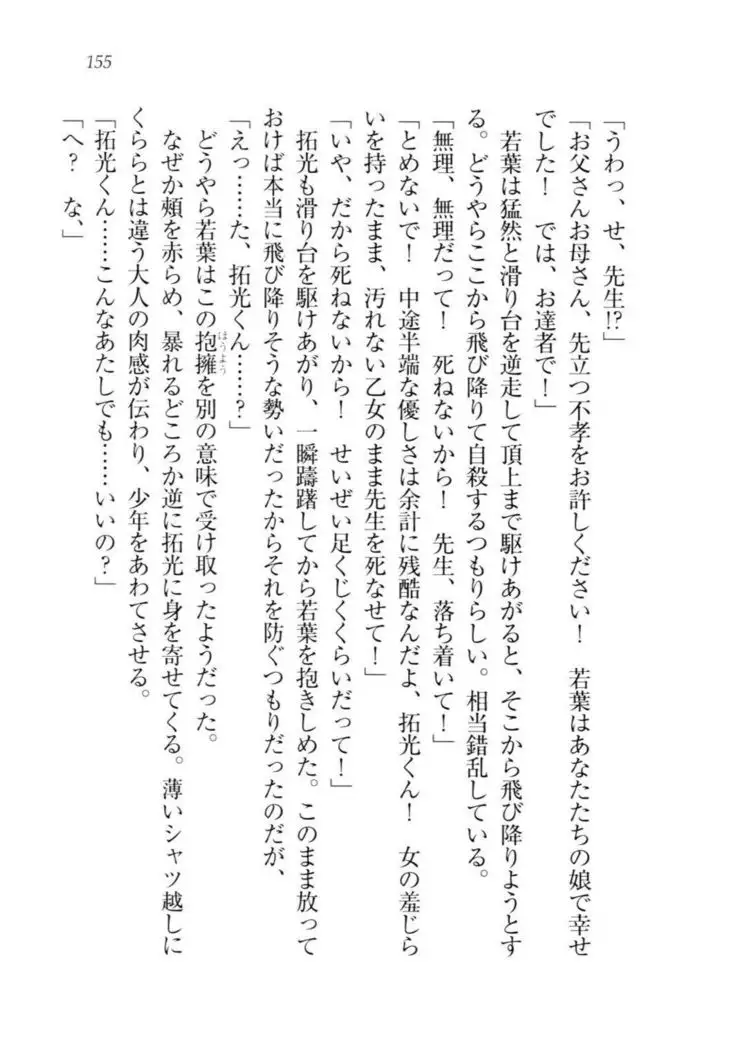 155
「うわっ、せ、先生!?」
「お父さんお母さん、先立つ不孝をお許しください！　若葉はあなたたちの娘で幸せ
でした！　では、お達者で！」
　若葉は猛然と滑り台を逆走して頂上まで駆けあがると、そこから飛び降りようとす
る。どうやらここから飛び降りて自殺するつもりらしい。相当錯乱している。
「無理、無理だって！　死ねないから！　先生、落ち着いて！」
「とめないで！　中途半端な優しさは余計に残酷なんだよ、拓光くん！　女の羞じら
いを持ったまま、汚れない乙女のまま先生を死なせて！」
「いや、だから死ねないから！　せいぜい足くじくくらいだって！」
　拓光も滑り台を駆けあがり、一瞬躊躇してから若葉を抱きしめた。このまま放って
おけば本当に飛び降りそうな勢いだったからそれを防ぐつもりだったのだが、
「えっ……た、拓光くん……？」
　どうやら若葉はこの抱擁を別の意味で受け取ったようだった。
ほうよう
　なぜか頬を赤らめ、暴れるどころか逆に拓光に身を寄せてくる。薄いシャツ越しに
くららとは違う大人の肉感が伝わり、少年をあわてさせる。
「拓光くん……こんなあたしでも……いいの？」
「へ？　な、」